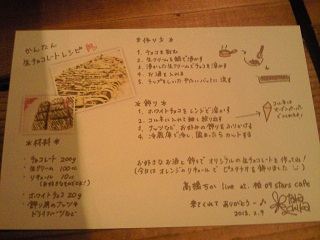 かんたん
生チョコレートレシピ
*作り方*
1. チョコを刻む
2. 生クリームを鍋で沸かす
3. 沸かした生クリームでチョコを溶かす
4. お酒を入れる
5. ラップをしいた平たいバットに流す
*飾り*
1. ホワイトチョコをレンジで溶かす
2. コルネに入れて細く絞り出す
3. ナッツなど お好みの飾りをふりかける
4. 冷蔵庫で冷し、固まったらカットする
*材料*
チョコレート 200g
生クリーム 100cc
リキュール 10cc
ホワイトチョコ 20g
飾り用のナッツや
ドライフルーツなど
お好きなお酒と飾りで オリジナルの生チョコレートを作ってね!
(今回は オレンジのリキュールで ピスタチオを飾りました)
高橋ちか live at. 柏 stars cafe
来てくれて ありがとう
2012.2.9